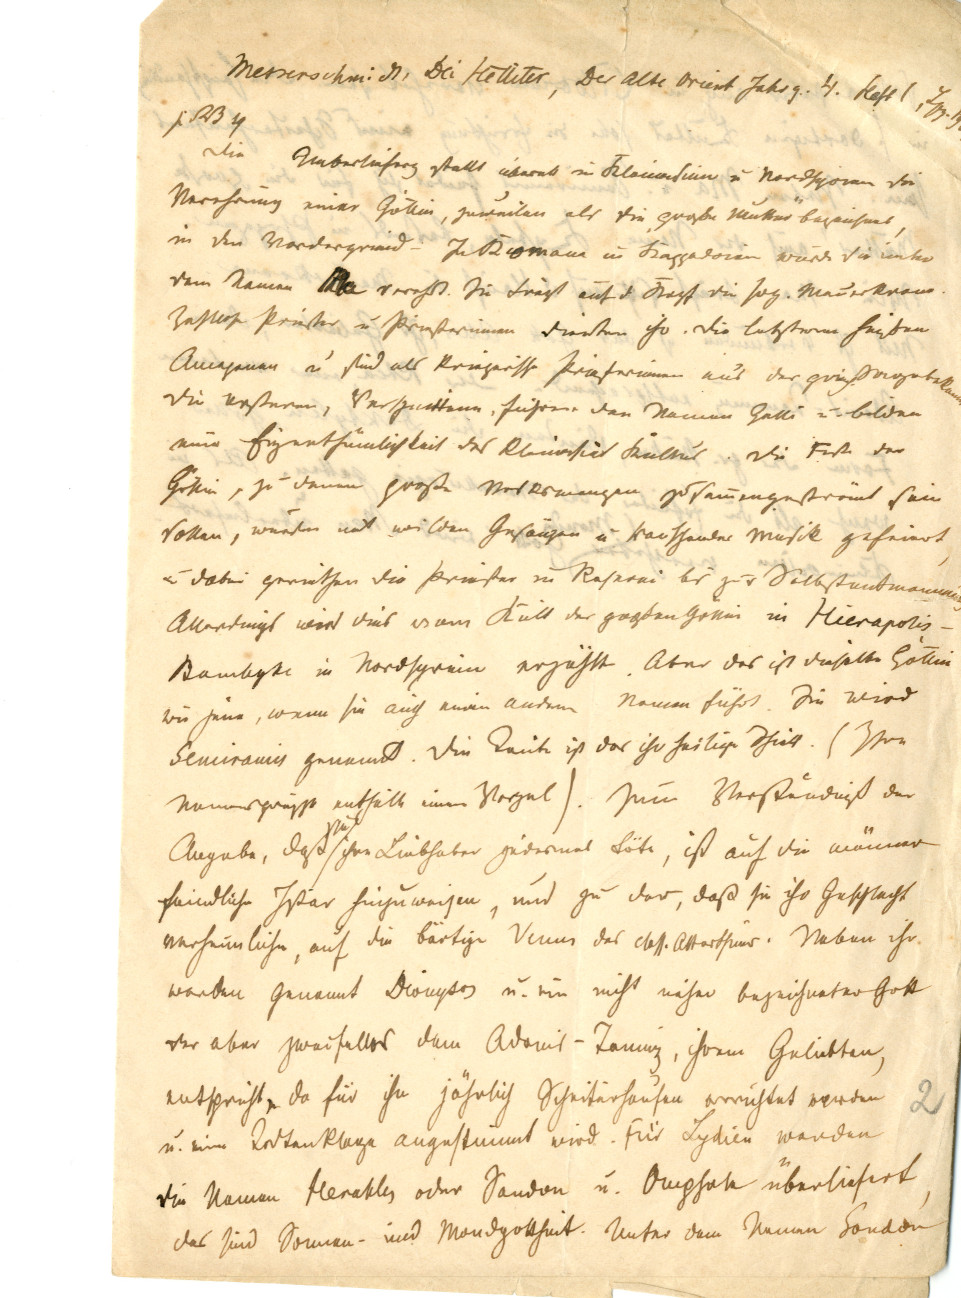 Messerschmidt, Die Hethiter, Der alte Orient Jahrg. 4. Heft 1
Die Überlieferg stellt überall in Kleinasien u Nordsyrien die
Verehrung einer Göttin, zuweilen als die große Mutter bezeichnet,
in den Vordergrund – In Komana in Kappadoxien wurde sie unter
dem Namen Ma verehrt. Sie trägt auf d. Kopf die sog. Mauerkrone.
Zahllose Priester u Priesterinnen dienten ihr. Die letzteren heißen
Amazonen u sind als kriegerische Priesterinnen aus der griech
die ersteren, Verschnittene, führen den Namen Galli u bilden
eine Eigenthümlichkeit des Kleinasiat Kultus. Die Feste der
Göttin, zu denen große Volksmengen zusammengeströmt sein
sollen, wurden mit wilden Gesängen u rauschender Musik gefeiert,
u dabei gerieten die Priester in Raserei bis zur Selbstentmannung
Allerdings wird dies vom Kult der großen Göttin in Hierapolis –
Bambyke in Nordsyrien erzählt. Aber das ist dieselbe Göttin
wie jene, wenn sie auch einen andern Namen führt. Sie wird
Semiramis genannt. Die Taube ist das ihr heilige Thier. (Ihre
Namensgruppe enthält einen Vogel). Zum Verständniß der
Angabe, daß sie ihre Liebhaber jedesmal töte, ist auf die männer
feindliche Istar hinzuweisen, und zu der, daß sie ihr Geschlecht
verheimliche, auf die bärtige Venus des class. Alterthums. Neben ihr
werden genannt Dionysos u. ein nicht näher bezeichneter Gott
der aber zweifellos dem Adonis – Tamuz, ihrem Geliebten,
entspricht, da für ihn jährlich Scheiterhaufen errichtet werden
u. eine Todtenklage angestimmt wird. Für Lydien werden
die Namen Herakles oder Sandon u. Omphale überliefert,
das sind Sonnen- und Mondgottheit. Unter dem Namen Sandon
2